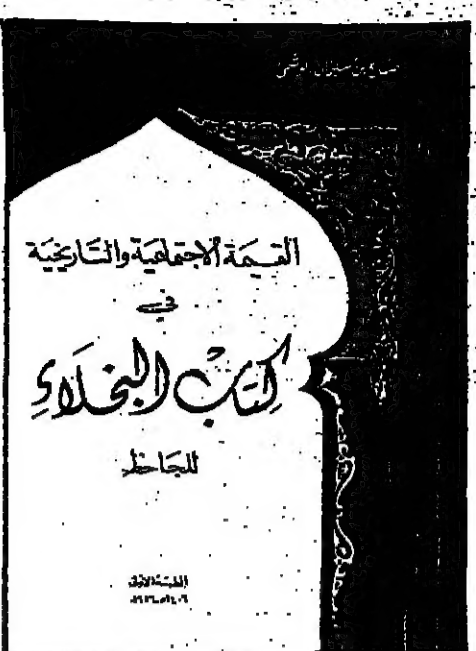 صالح بن سليمان
القيمة الاجتماعية والتاريخية
في
كتاب البخلاء
للجاحظ
الطبعة الأولى